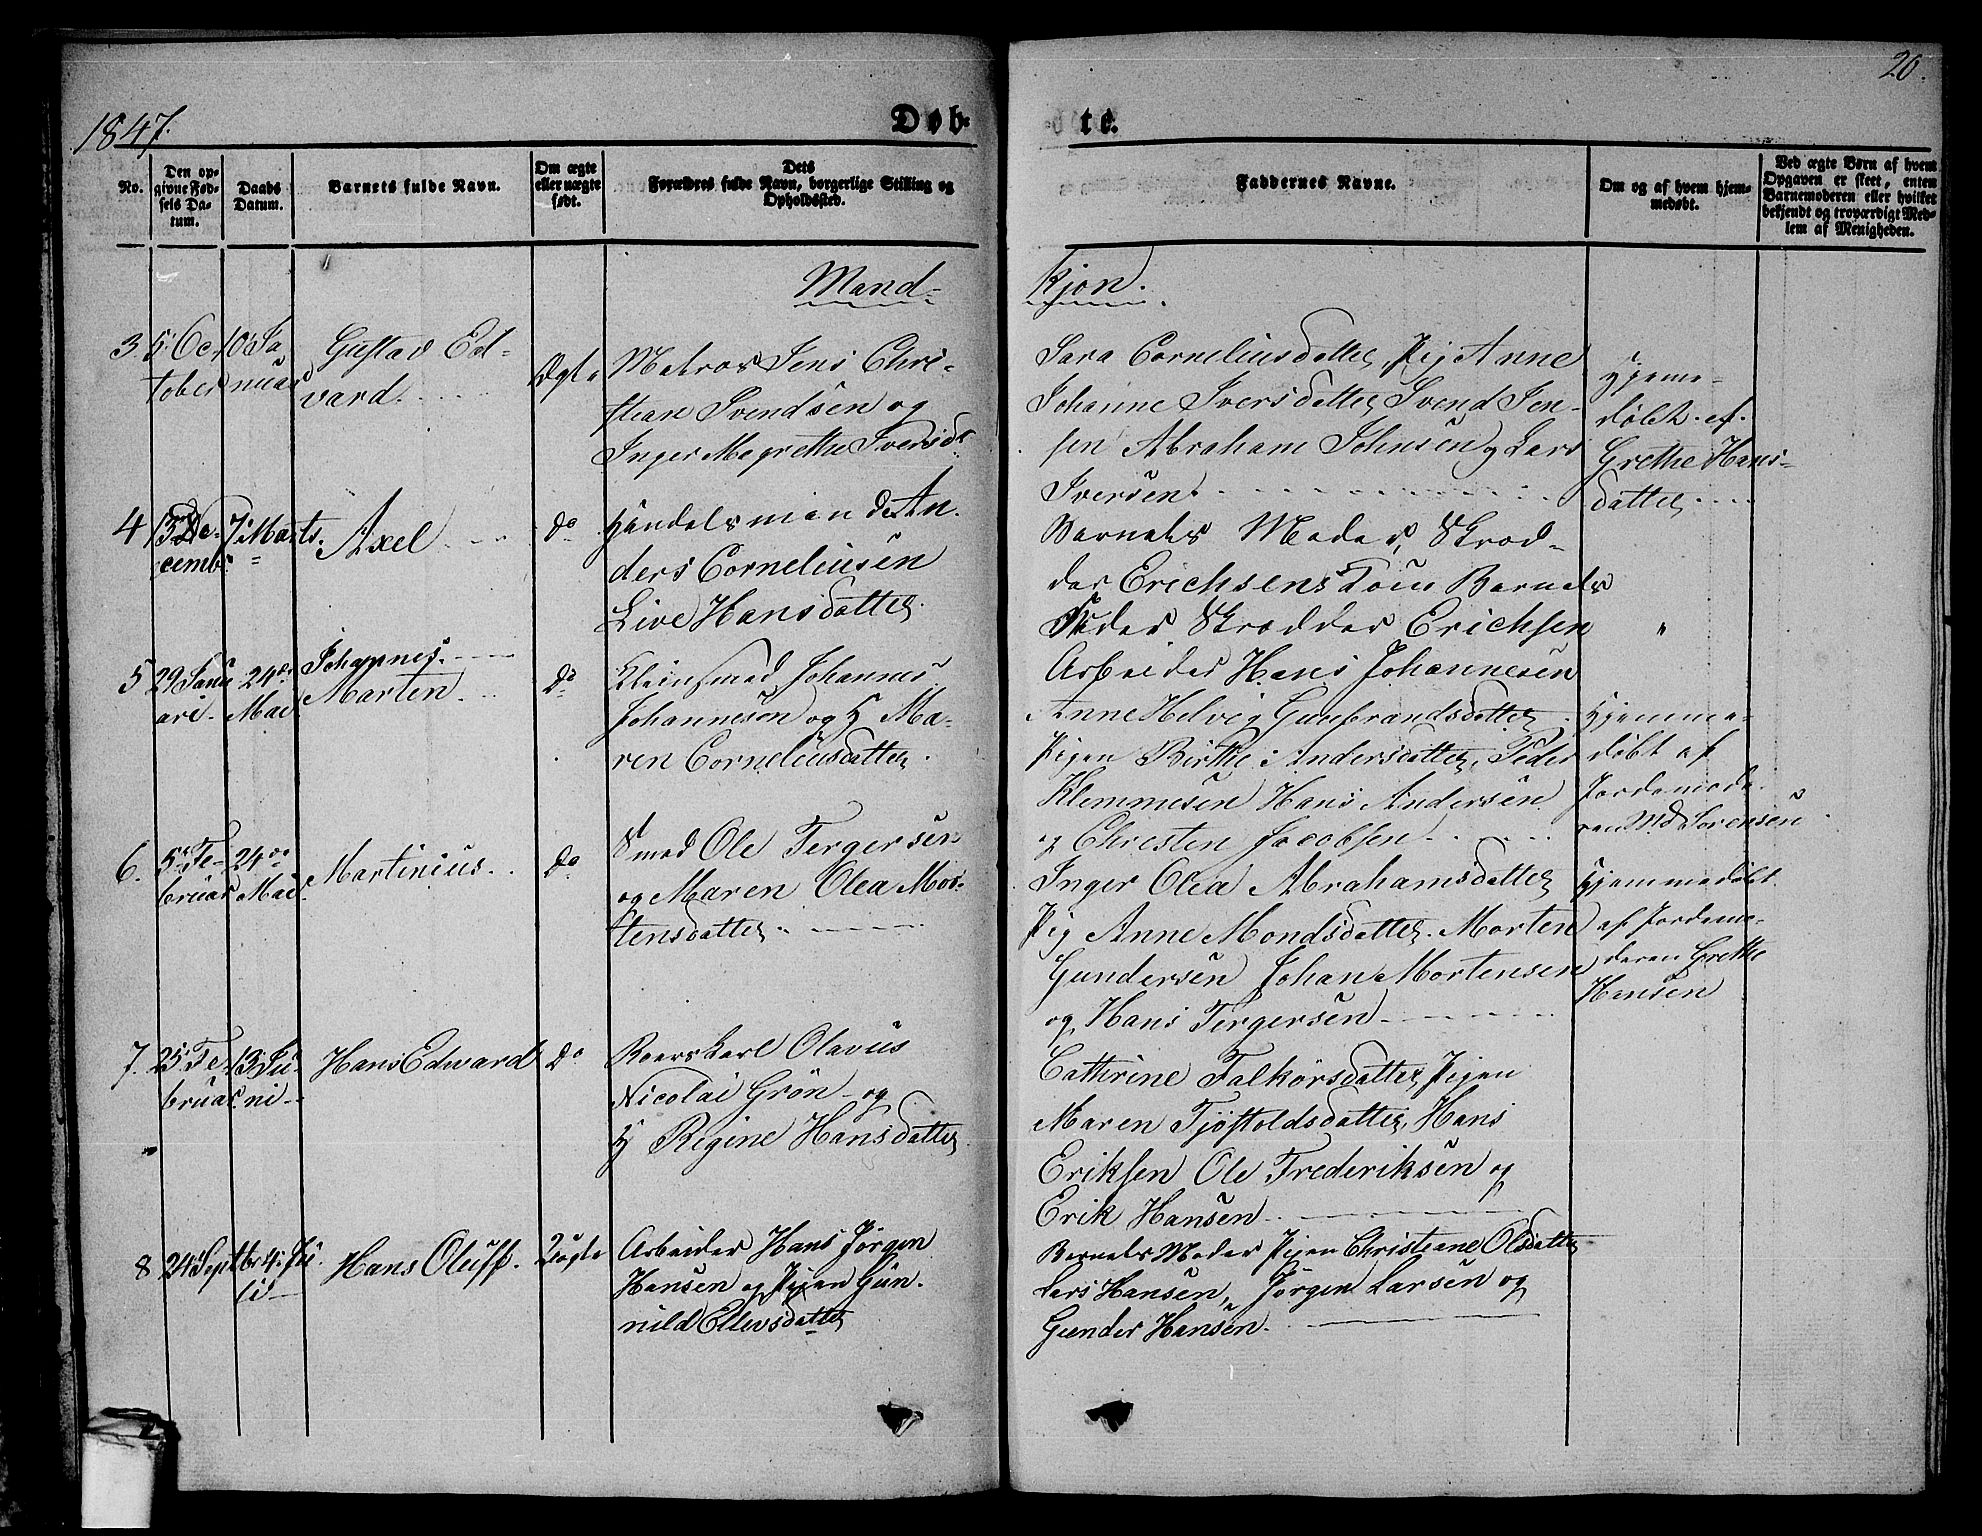 1847.
Døb-
te.
20.
No.
Den op-
givne Fød-
sels Da-
tum.
Daabs
Datum.
Barnets fulde Navn.
Om ægte
eller uægte
født.
Dets
Forældres fulde Navn, borgerlige Stilling og
Opholdssted.
Faddernes Navne.
Om og af hvem hjem-
medøbt.
Ved ægte Børn af hvem
Opgaven er skeet, enten
Barnemoderen eller hvilket
bekjendt og troværdigt Med-
lem af Menigheden.
Mand-
Kjøn.
3. 5 Oc-
tober
10 Ja
nuar
Gustav Ed-
vard.
Ægte
Matros Jens Chri-
stian Svendsen og
Inger Magrethe Iversd.
Sara Corneliusdatter, Pig Anne
Johanne Iversdatter Svend Jen-
sen Abraham Johnsen og Lars
Iversen.
Hjeme-
døbt af
Grethe Hans-
datter
4 13 De-
cembr.
7 Marts.
Axel
Do
Handelsmand An-
ders Corneliusen
Live Hansdatter.
Barnets Moder, Skræd-
der Erichsens Barnets
Fader, Skrædder Erichsen
Arbeider Hans Johannesen
"
5 29 Janu
ari.
24de
Mai
Johannes
Marten
Do
Kleinsmed Johannes
Johannesen og H Ma-
ren Corneliusdatter.
Anne Helvig Gunbrandsdatter
Pigen Birthe Andersdatter, Peder
Klemmesen Hans Andersen
og Christen Jacobsen
Hjemme-
døbt af
Jordemode-
ren Md Sørensen
6. 5 Fe-
bruar
24de
Mai
Martinius.
Do
Smed Ole Tergersen
og Maren Olea Mor-
tensdatter
Inger Olea Abrahamsdatter
Pig Anne Mondsdatter. Morten
Gundersen Johan Mortensen
og Hans Tergersen
Hjemmedøbt
af Jordemo-
deren Grethe
Hansen
7. 25 Fe-
bruar
13 Ju-
ni
Hans Edward
Do
Roerskarl Olavus
Nicolai Grøn og
H Regine Hansdatter
Cathrine Falkorsdatter, Pigen
Maren Tjøstoldsdatter, Hans
Eriksen Ole Frederiksen og
Erik Hansen
8 24 Septbr
4 Ju-
li
Hans Oluff.
Uægte
Arbeider Hans Jørgen
Hansen og Pigen Gun-
nild Ellevsdatter
Barnets Moder Pigen Christiane Olsdatter
Lars Hansen, Jørgen Larsen og
Gunder Hansen.